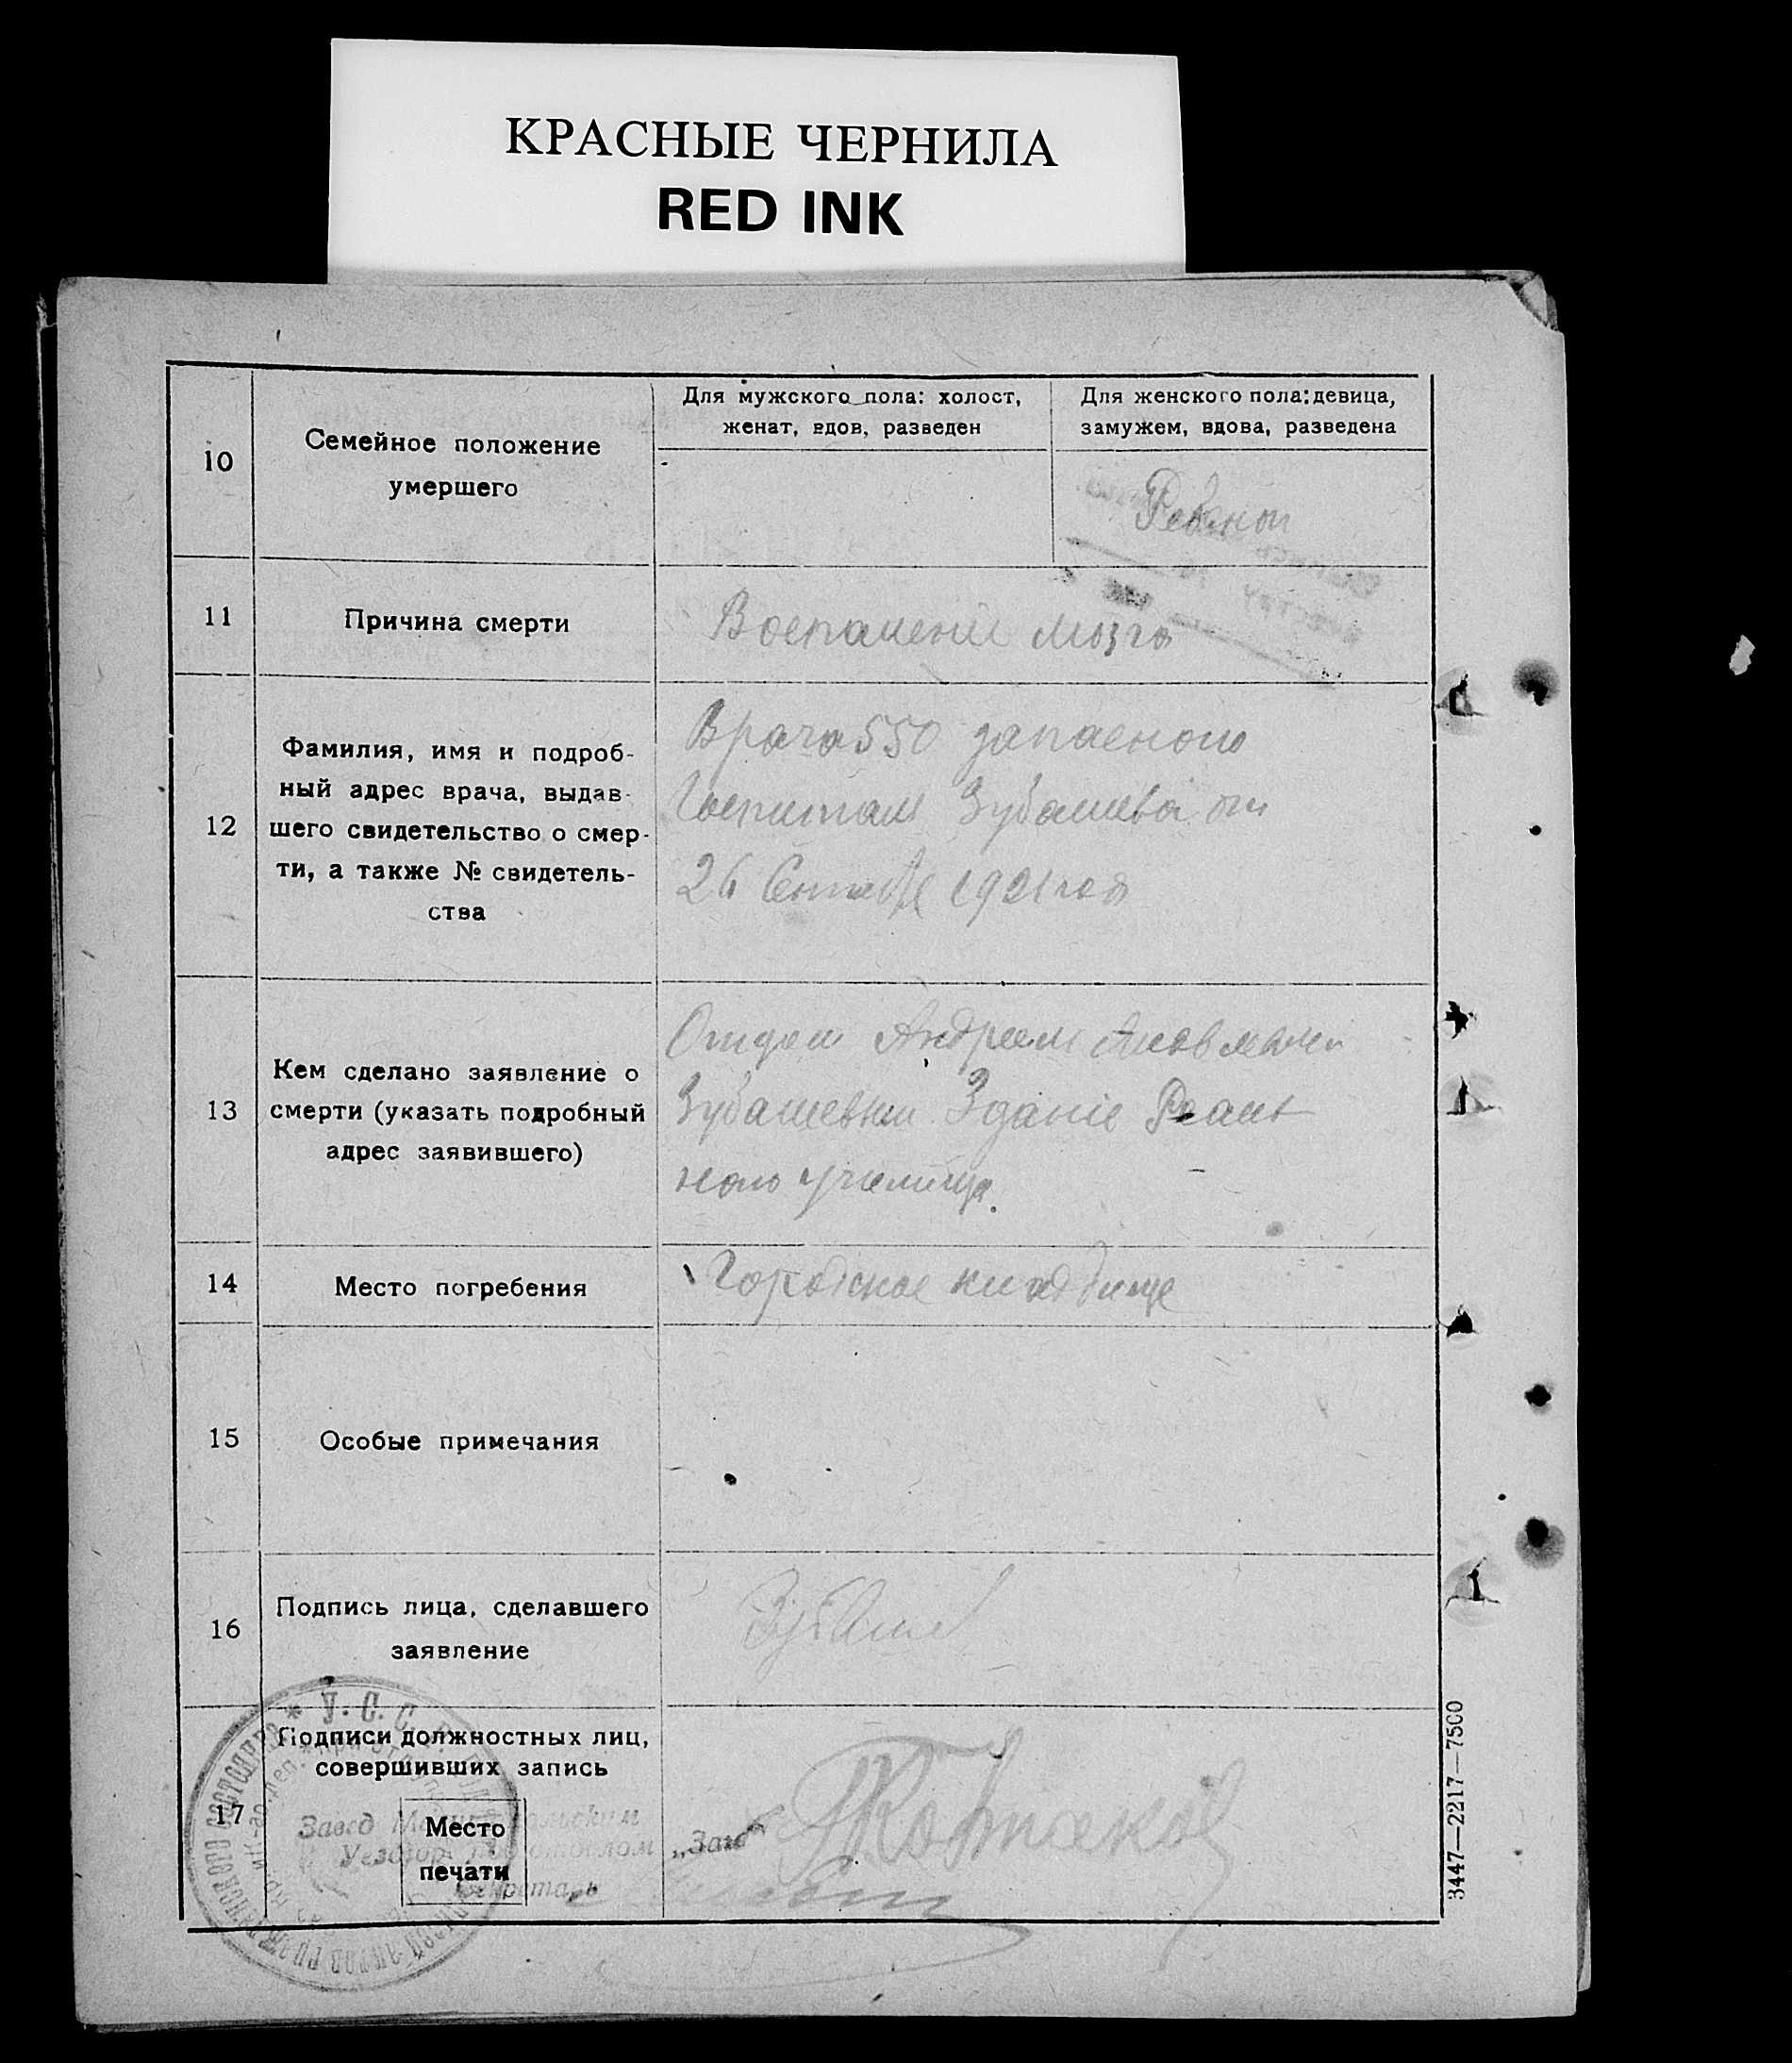 КРАСНЫЕ ЧЕРНИЛА
RED INK
Для мужского пола: холост,
женат, вдов, разведен
Для женского пола: девица,
замужем, вдова, разведена
10
Семейное положение
умершего
Ребенок
11
Причина смерти
Воспаление мозга
12
Фамилия, имя и подроб-
ный адрес врача, выдав-
шего свидетельство о смер-
ти, а также № свидетель-
ства
Врача 550 запасного
Госпиталя Зубашева от
26 Сентября 1921 года
13
Кем сделано заявление о
смерти (указать подробный
адрес заявившего)
Отцом Андреем
Зубашевым Зданіе Реаль
ного училища.
14
Место погребения
Городское кладбище
15
Особые примечания
16
Подпись лица, сделавшего
заявление
Зубашев
17
Подписи должностных лиц,
совершивших запись
Место
печати
* У. С. С. Р. *
Завед
Секретарь
„Заг"
3447—2217—7500